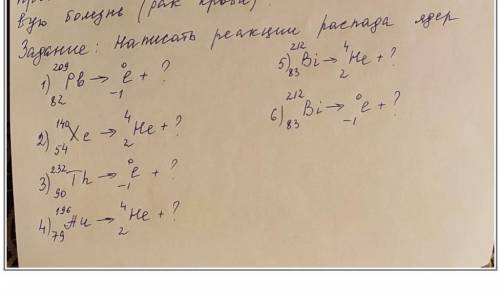 вую болезнь (рак крови).
Задание: Написать реакции распада ядер
1) ²⁰⁹₈₂Pb → ⁰₋₁e + ?
2) ¹⁴⁰₅₄Xe → ⁴₂He + ?
3) ²³²₉₀Th → ⁰₋₁e + ?
4) ¹⁹⁶₇₉Au → ⁴₂He + ?
5) ²¹²₈₃Bi → ⁴₂He + ?
6) ²¹²₈₃Bi → ⁰₋₁e + ?